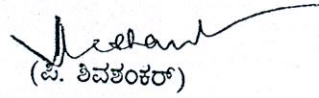 (ಪಿ. ಶಿವಶಂಕರ್)